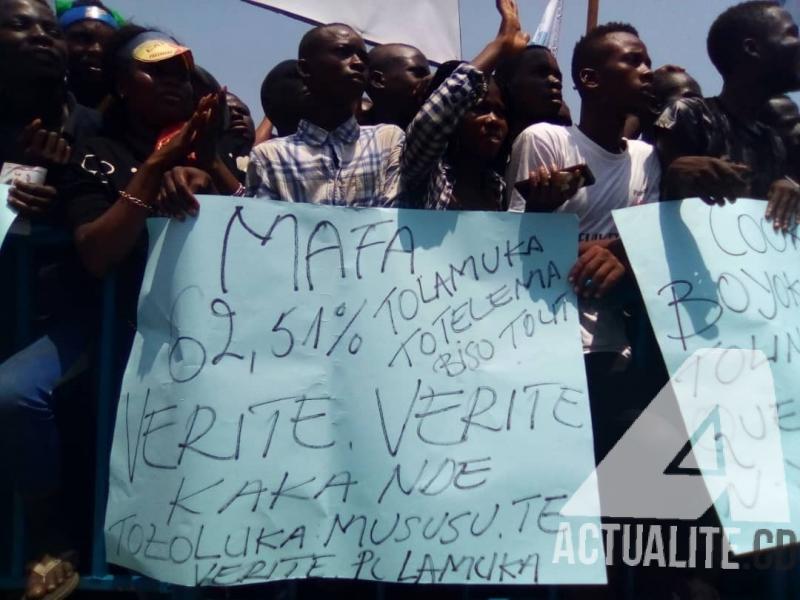 MAFA
62,51%
TOLAMUKA
TOTELEMA
BISO
VERITE. VERITE
KAKA NDE
TOZOLUKA MUSUSU. TE
VERITE. Pc LAMUKA
BOYOK
ACTUALITE.CD